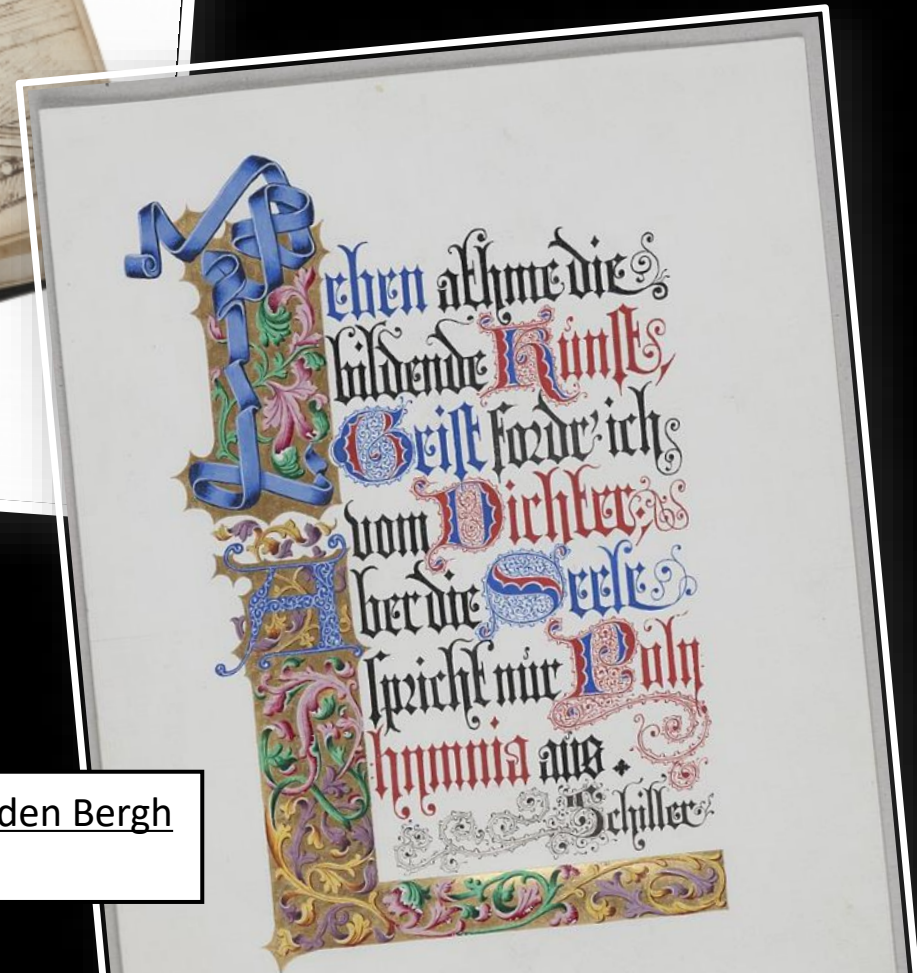 Leben athme die
bildende Kunst,
Geist fordr' ich
vom Dichter;
Aber die Seele
spricht nur Poly
hymnia aus.
Schiller
den Bergh